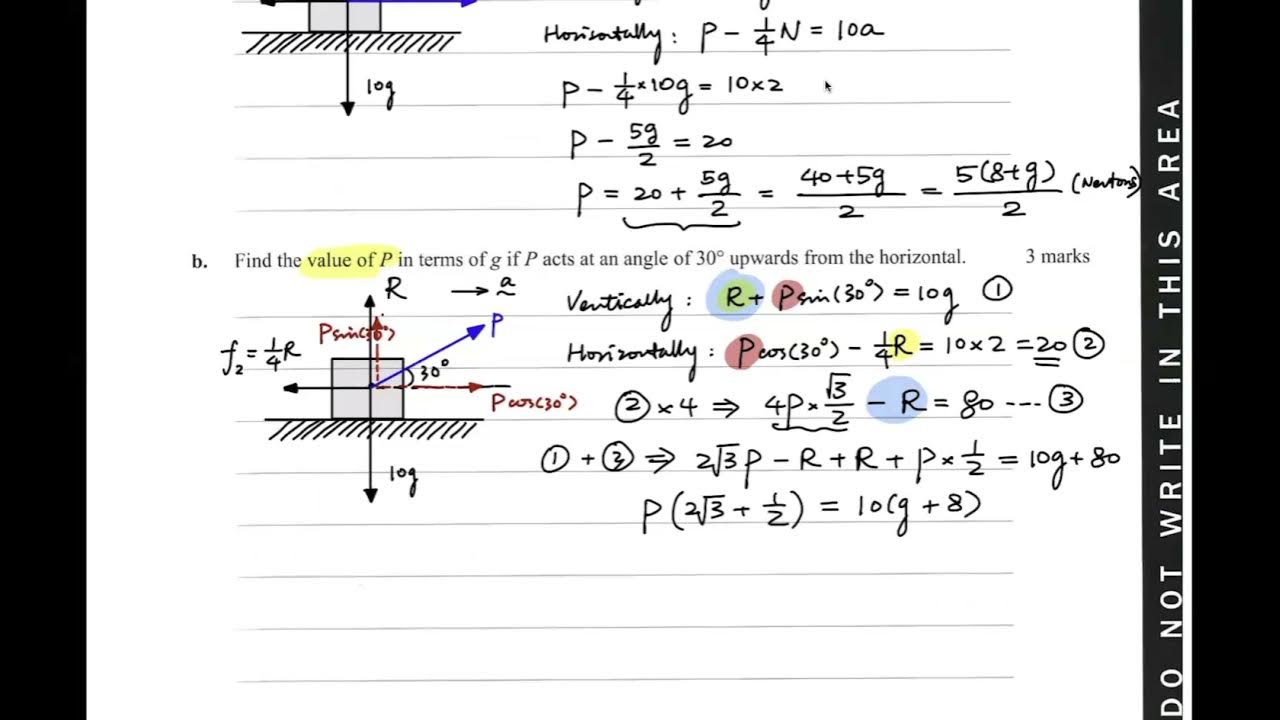 Horizontally: P - 1/4 N = 10a
10g
P - 1/4 × 10g = 10 × 2
P - 5g/2 = 20
P = 20 + 5g/2 = (40+5g)/2 = 5(8+g)/2 (Newtons)
b. Find the value of P in terms of g if P acts at an angle of 30° upwards from the horizontal. 3 marks
R → a
P
P sin(30°)
f₂ = 1/4 R
30°
P cos(30°)
10g
Vertically: R + P sin(30°) = 10g ①
Horizontally: P cos(30°) - 1/4 R = 10 × 2 = 20 ②
② × 4 ⇒ 4P × √3/2 - R = 80 ---- ③
① + ③ ⇒ 2√3 P - R + R + P × 1/2 = 10g + 80
P (2√3 + 1/2) = 10(g + 8)
DO NOT WRITE IN THIS AREA